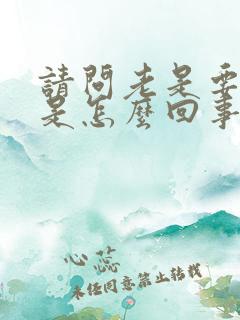 請問老是要
是怎麼回事
心蕊
未經同意禁止轉載